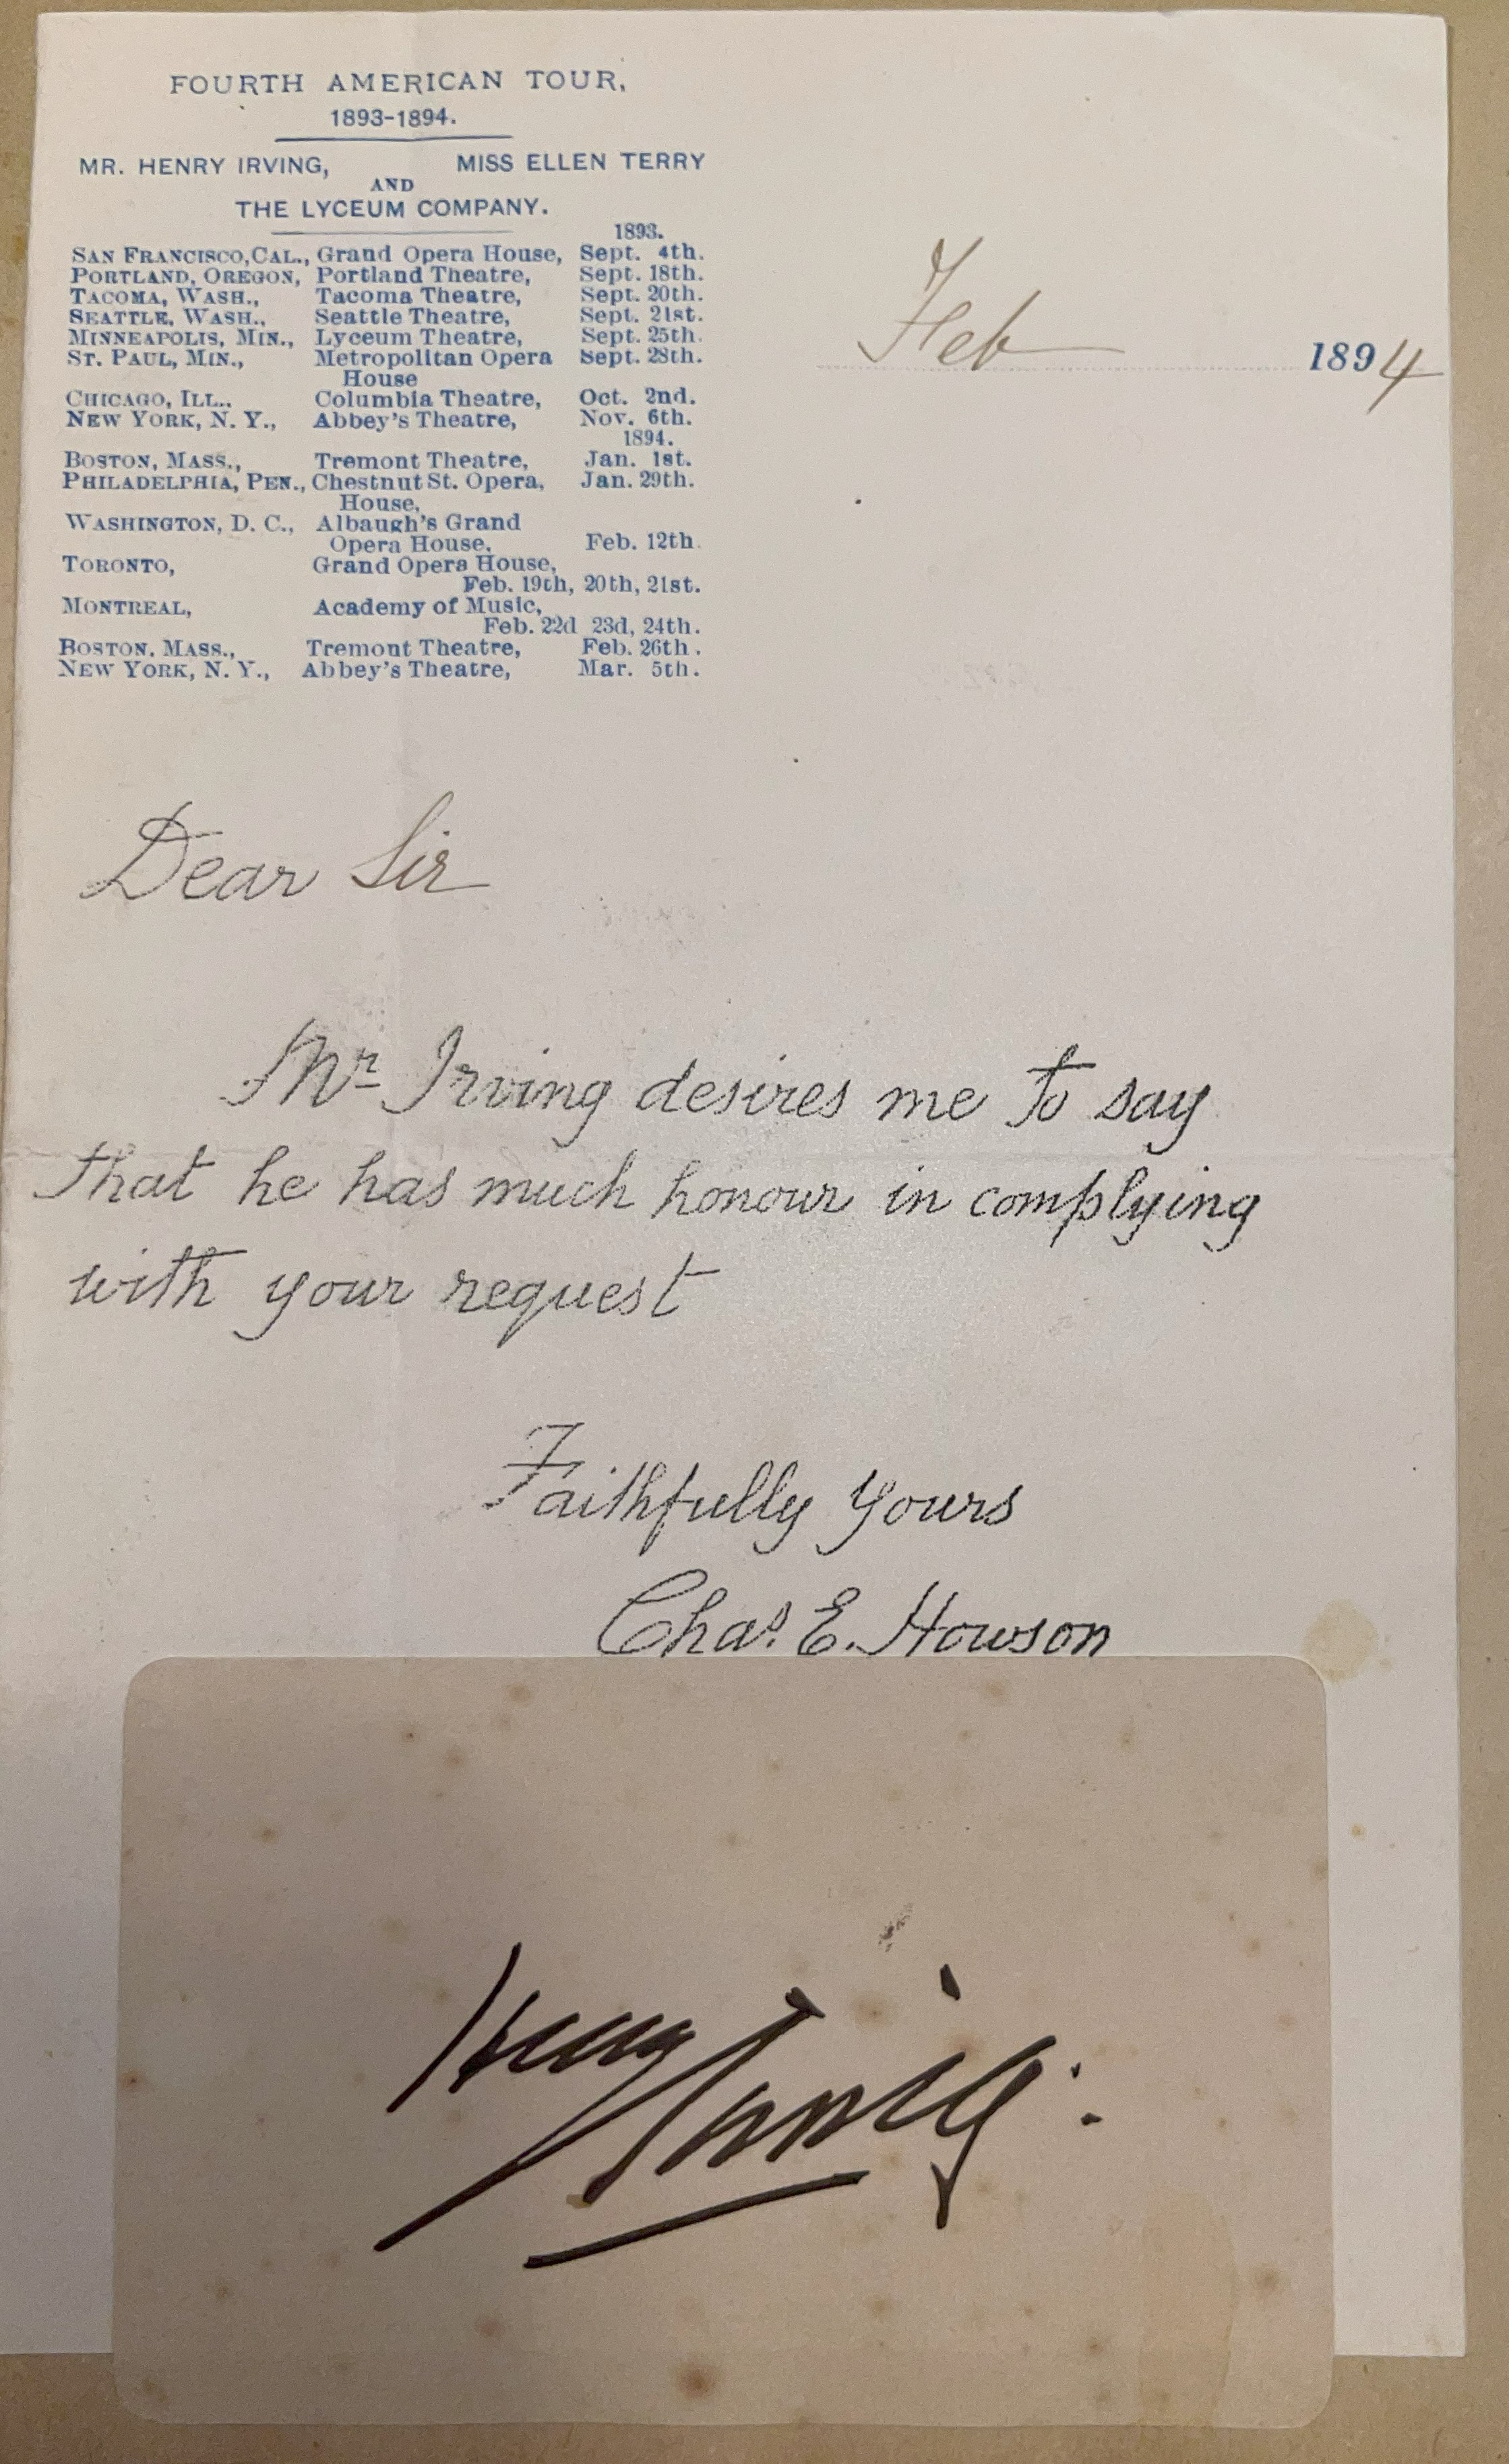 FOURTH AMERICAN TOUR,
1893-1894.
MR. HENRY IRVING, MISS ELLEN TERRY
AND
THE LYCEUM COMPANY.
1893.
SAN FRANCISCO, CAL., Grand Opera House, Sept. 4th.
PORTLAND, OREGON, Portland Theatre, Sept. 18th.
TACOMA, WASH., Tacoma Theatre, Sept. 20th.
SEATTLE, WASH., Seattle Theatre, Sept. 21st.
MINNEAPOLIS, MIN., Lyceum Theatre, Sept. 25th.
ST. PAUL, MIN., Metropolitan Opera Sept. 28th.
House
CHICAGO, ILL., Columbia Theatre, Oct. 2nd.
NEW YORK, N. Y., Abbey's Theatre, Nov. 6th.
1894.
BOSTON, MASS., Tremont Theatre, Jan. 1st.
PHILADELPHIA, PEN., Chestnut St. Opera, Jan. 29th.
House,
WASHINGTON, D. C., Albaugh's Grand
Opera House, Feb. 12th.
TORONTO, Grand Opera House,
Feb. 19th, 20th, 21st.
MONTREAL, Academy of Music,
Feb. 22d 23d, 24th.
BOSTON. MASS., Tremont Theatre, Feb. 26th.
NEW YORK, N. Y., Abbey's Theatre, Mar. 5th.
Feb 1894
Dear Sir
Mr Irving desires me to say
that he has much honour in complying
with your request
Faithfully Yours
Chas. E. Howson
Henry Irving.